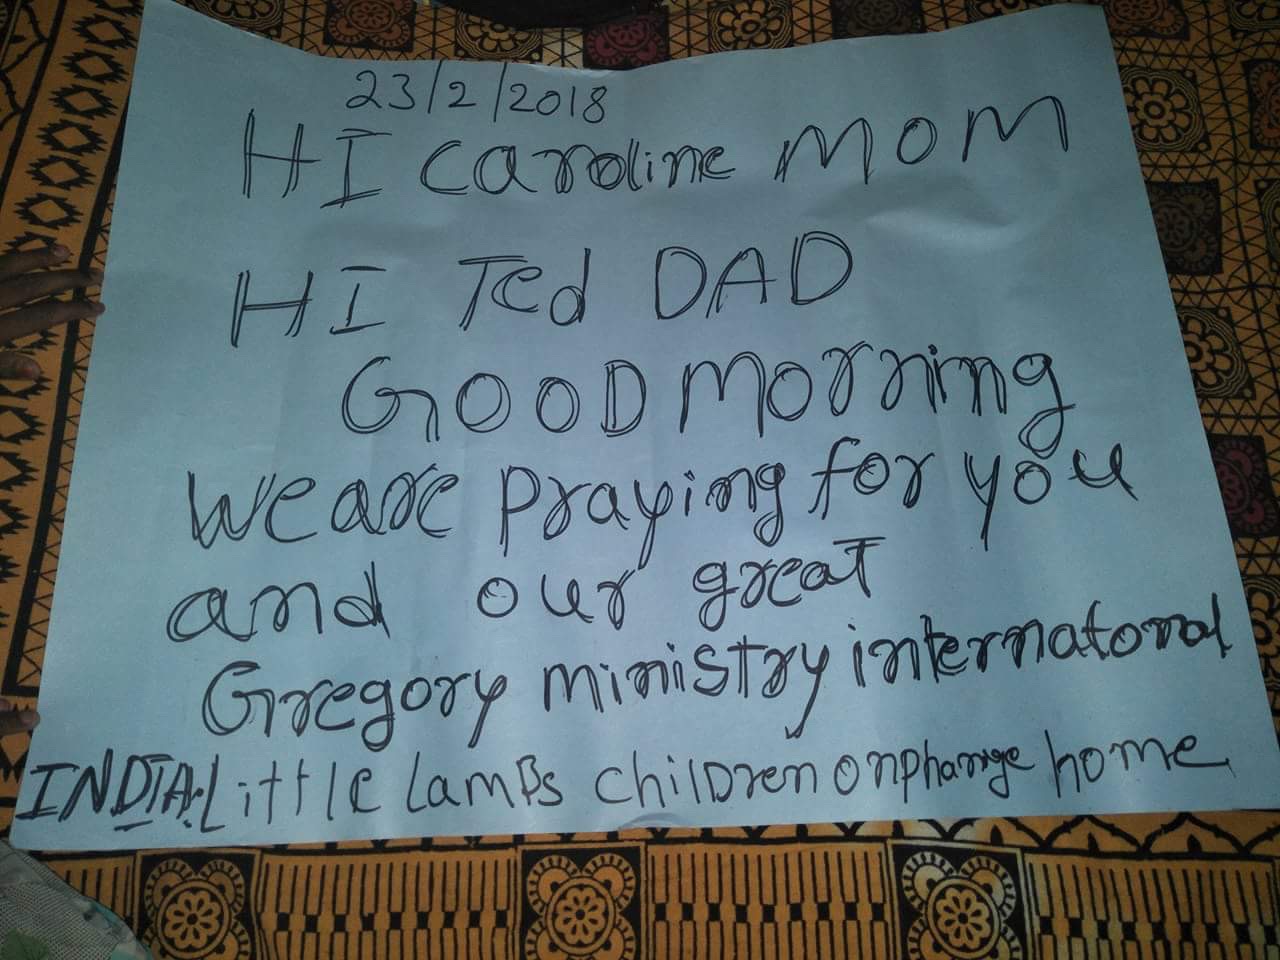 23/2/2018
HI Caroline MOM
HI Ted DAD
GOOD Morning
We are praying for you
and our great
Gregory ministry internatonal
INDIA. Little Lamps children onpharnge home